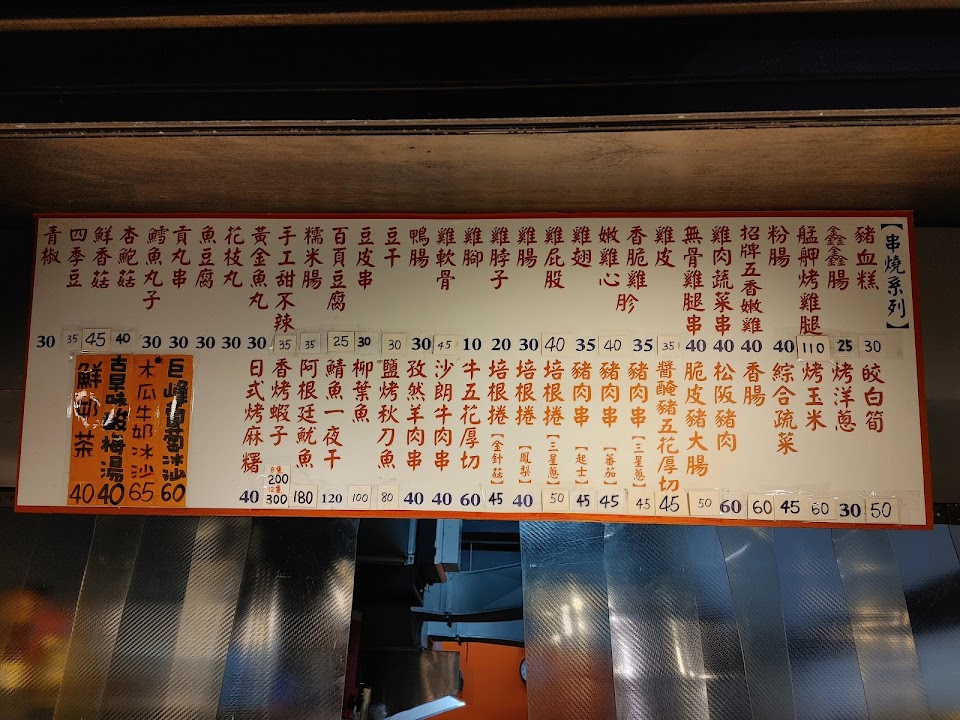 【串燒系列】
豬血糕 30
鑫鑫腸 25
艋舺烤雞腿 110
粉腸 40
招牌五香嫩雞 40
雞肉蔬菜串 40
無骨雞腿串 40
雞皮 35
香脆雞胗 35
嫩雞心 40
雞翅 35
雞屁股 40
雞腸 30
雞脖子 20
雞腳 10
雞軟骨 45
鴨腸 30
豆干 30
豆皮串 30
百頁豆腐 25
糯米腸 35
手工甜不辣 35
黃金魚丸 30
花枝丸 30
魚豆腐 30
貢丸串 30
鱈魚丸子 30
杏鮑菇 40
鮮香菇 45
四季豆 35
青椒 30
皎白筍 50
烤洋蔥 30
烤玉米 60
綜合蔬菜 45
香腸 60
松阪豬肉 60
脆皮豬大腸 50
醬醃豬五花厚切 45
豬肉串【三星蔥】 45
豬肉串【蕃茄】 45
豬肉串【起士】 45
培根捲【三星蔥】 50
培根捲【鳳梨】 40
培根捲【金針菇】 45
牛五花厚切 60
沙朗牛肉串 40
孜然羊肉串 40
鹽烤秋刀魚 80
柳葉魚 100
鯖魚一夜干 120
阿根廷魷魚 180
香烤蝦子 8隻 200 12隻 300
日式烤麻糬 40
巨峰葡萄冰沙 60
木瓜牛奶冰沙 65
古早味酸梅湯 40
鮮奶茶 40